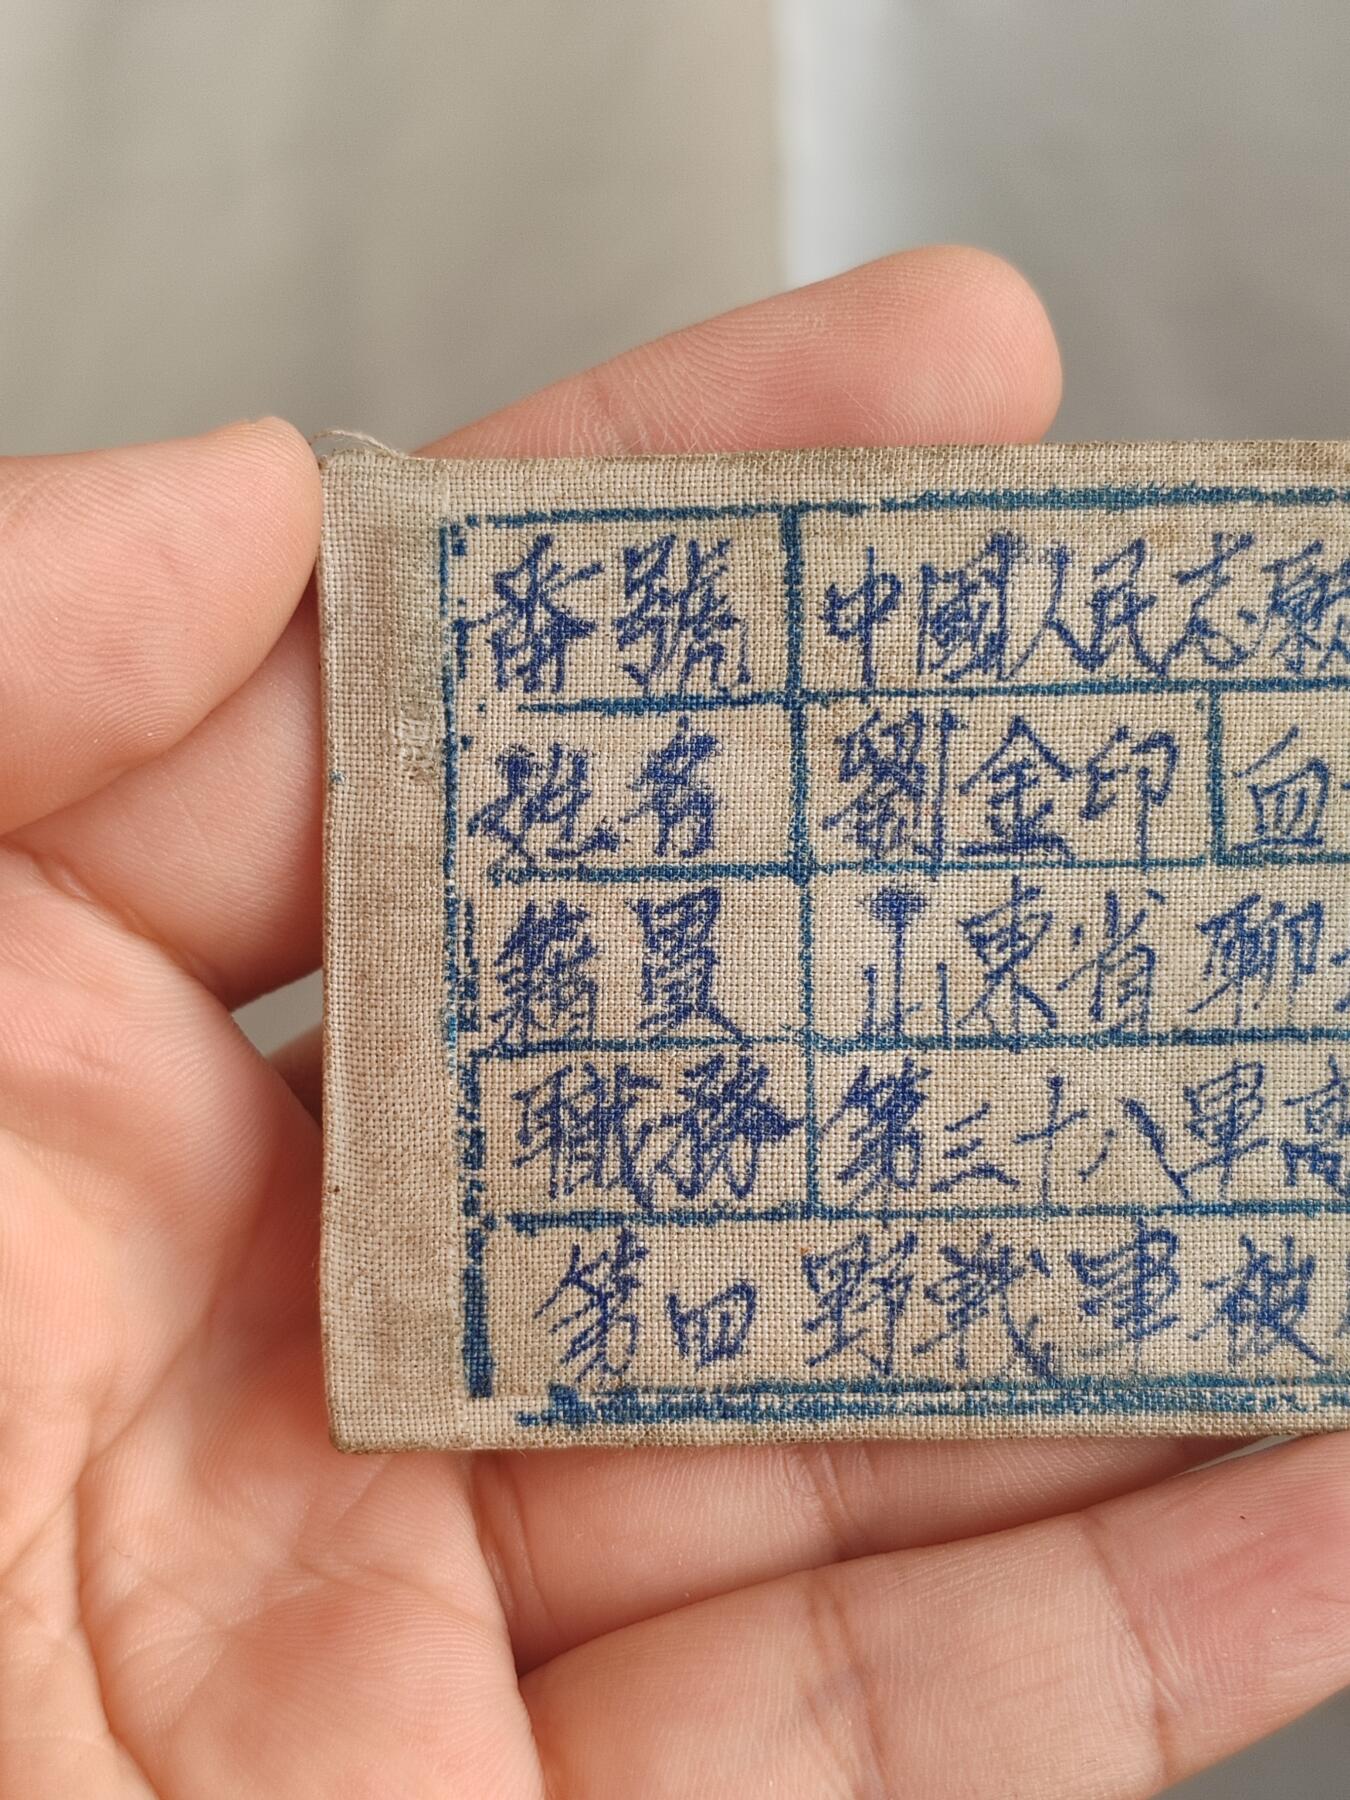 番號 中國人民志願
姓名 劉金印 血
籍貫 山東省聊
職務 第三十八軍高
第四野戰軍被